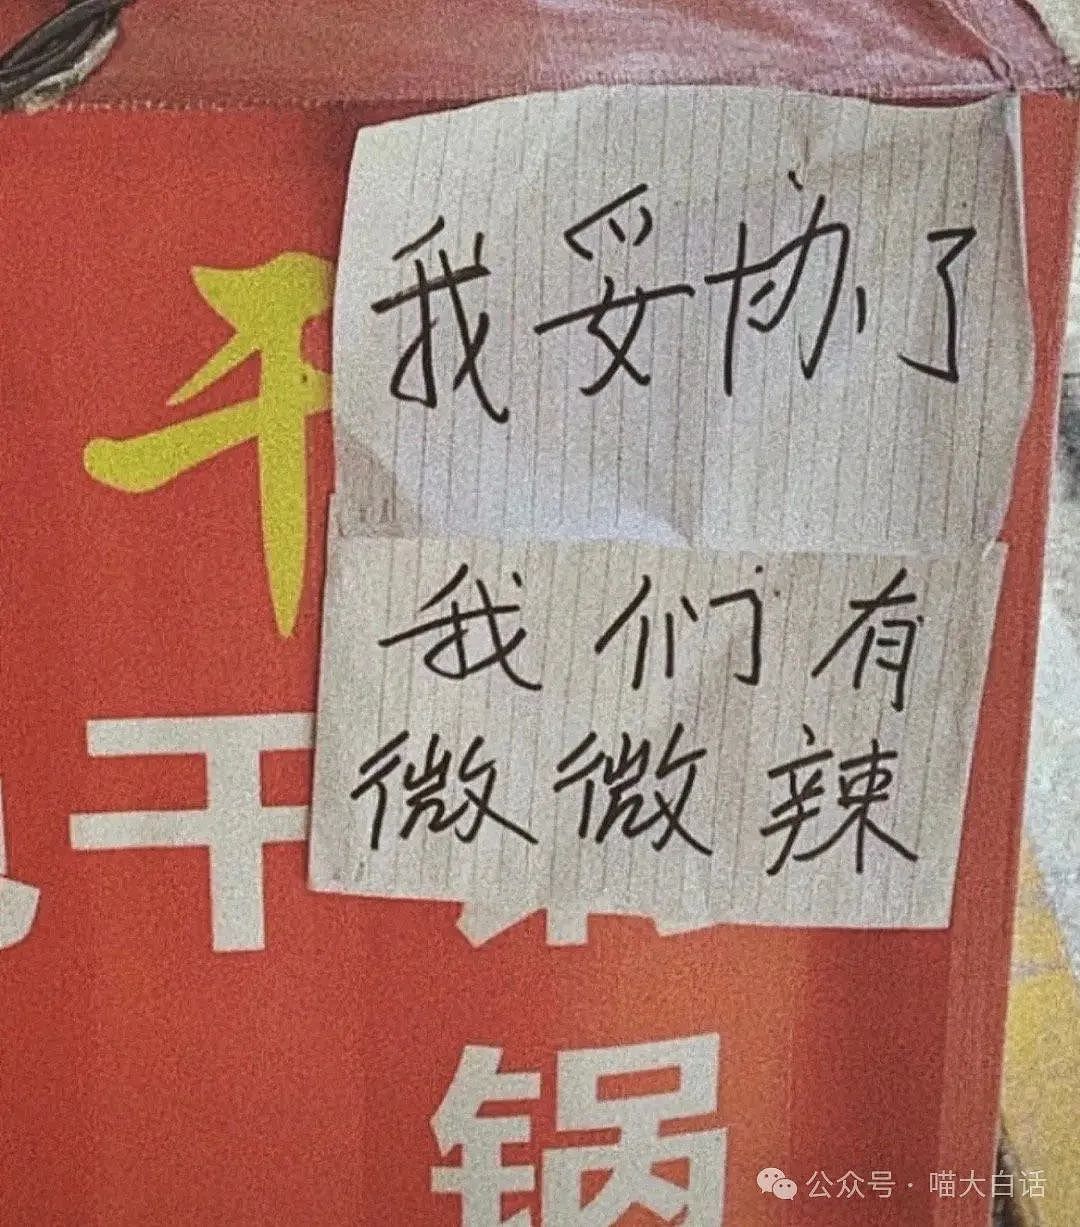 我妥协了
我们有
微微辣
干
锅
公众号 · 喵大白话